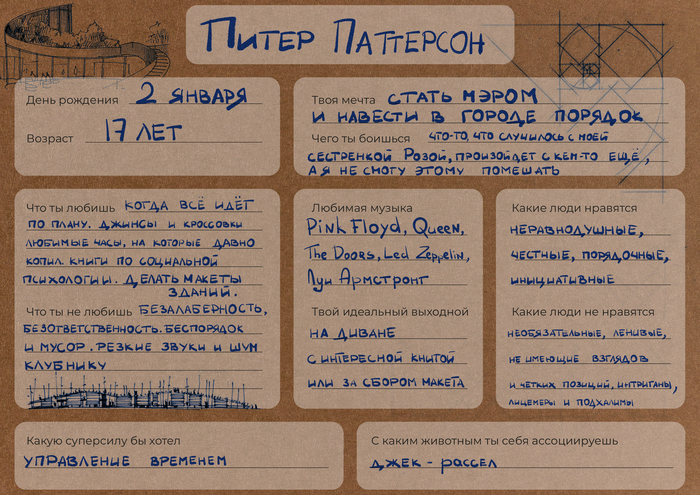 Питер Паттерсон
День рождения 2 января
Возраст 17 лет
Твоя мечта стать мэром
и навести в городе порядок
Чего ты боишься что-то, что случилось с моей
сестренкой Розой, произойдет с кем-то ещё,
а я не смогу этому помешать
Что ты любишь когда всё идёт
по плану. Джинсы и кроссовки
любимые часы, на которые давно
копил. Книги по социальной
психологии. Делать макеты
зданий.
Что ты не любишь безалаберность,
безответственность. Беспорядок
и мусор. Резкие звуки и шум
клубнику
Любимая музыка
Pink Floyd, Queen,
The Doors, Led Zeppelin,
Луи Армстронг
Твой идеальный выходной
на диване
с интересной книгой
или за сбором макета
Какие люди нравятся
неравнодушные,
честные, порядочные,
инициативные
Какие люди не нравятся
необязательные, ленивые,
не имеющие взглядов
и четких позиций, интриганы,
лицемеры и подхалимы
Какую суперсилу бы хотел
управление временем
С каким животным ты себя ассоциируешь
джек-рассел